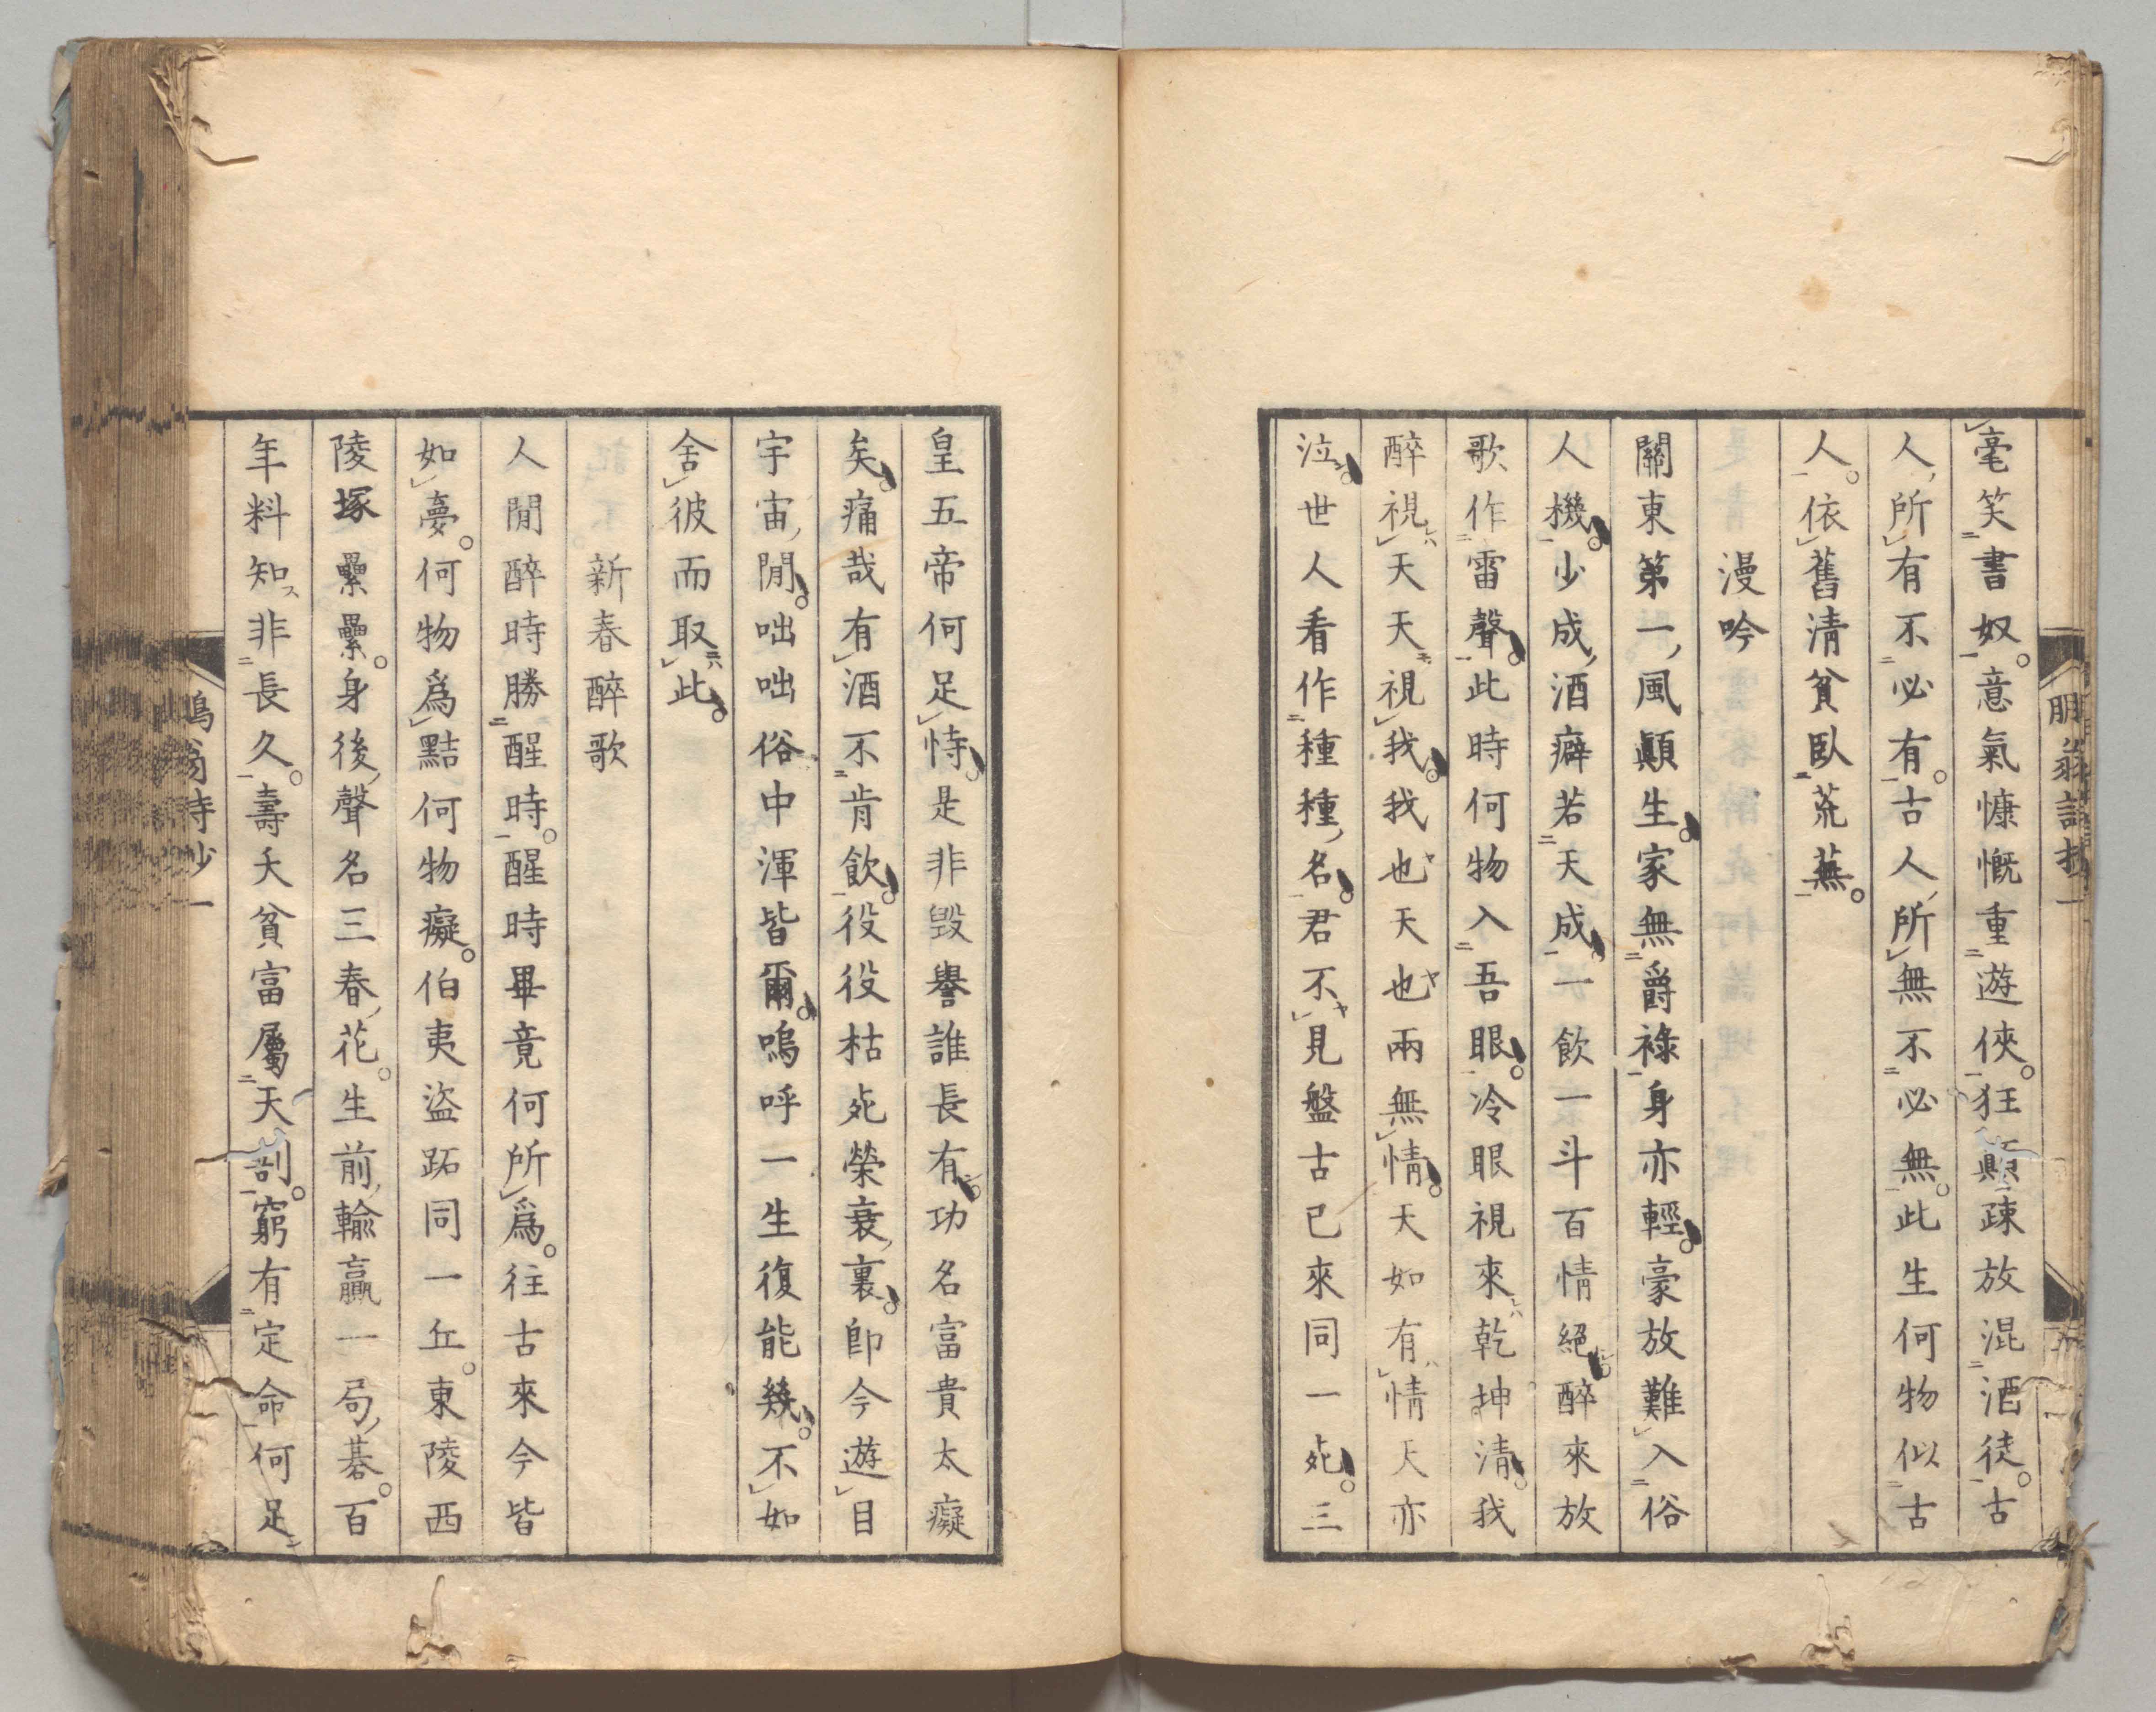 毫笑書奴。意氣慷慨重遊俠。狂顛疎放混酒徒。古
人所有不必有。古人所無不必無。此生何物似古
人。依舊清貧臥荒蕪。
漫吟
關東第一風顛生。家無爵祿身亦輕。豪放難入俗
人機。少成酒癖若天成。一飲一斗百情絕。醉來放
歌作雷聲。此時何物入吾眼。冷眼視來乾坤清。我
醉視天天視我。我也天也兩無情。天如有情天亦
泣。世人看作種種名。君不見盤古已來同一死。三
皇五帝何足恃。是非毀譽誰長有。功名富貴太癡
矣。痛哉有酒不肯飲。役役枯死榮衰裏。即今遊目
宇宙閒。咄咄俗中渾皆爾。嗚呼一生復能幾。不如
舍彼而取此。
新春醉歌
人閒醉時勝醒時。醒時畢竟何所爲。往古來今皆
如夢。何物爲黠何物癡。伯夷盜跖同一丘。東陵西
陵塚纍纍。身後聲名三春花。生前輸贏一局碁。百
年料知非長久。壽夭貧富屬天剖。窮有定命何足
鵬翁詩抄一